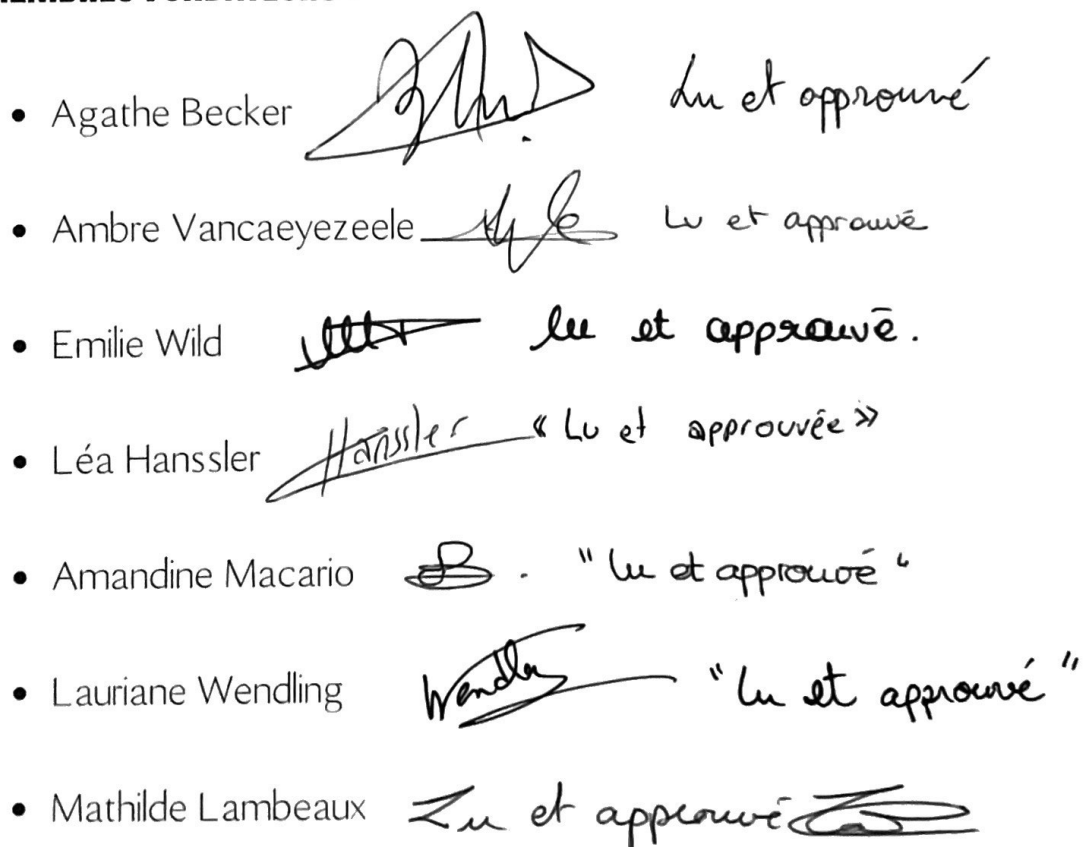 • Agathe Becker Lu et approuvé
• Ambre Vancaeyezeele Lu et approuvé
• Emilie Wild lu et approuvé.
• Léa Hanssler Hanssler « Lu et approuvée »
• Amandine Macario "lu et approuvé"
• Lauriane Wendling "lu et approuvé"
• Mathilde Lambeaux Lu et approuvé